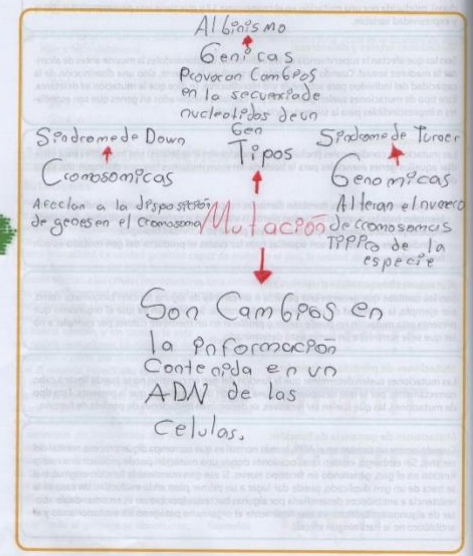 Albinismo
Genicas
Provocan Cambios
en la secuencia de
nucleotidos de un
Gen
Sindrome de Down
Cromosomicas
Afectan a la disposición
de genes en el cromosoma
Tipos
Sindrome de Turner
Genomicas
Alteran el numero
de cromosomas
Tipico de la
especie
Mutación
Son Cambios en
la información
Contenida en un
ADN de las
Celulas.